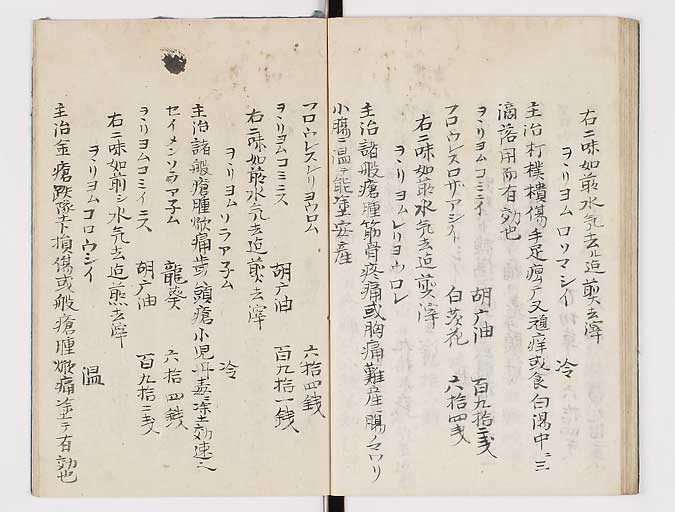 右二味如前水気去ル迠煎去滓
ヲヽリヨムロサマシイ 冷
主治打撲損傷手足痹テ又頑痒或食白湯中ニ三
滴落用而有効也
ヲヽリヨムコミニイ 胡广油 百九拾二戋
フロウレスロザアシイ 白茨花 六拾四戋
右二味如前水气去迠煎去滓
ヲヽリヨムレリヨウロレ
主治諸般瘡腫筋骨疼痛或胸痛難産腸
小腸ニ温テ能塗安産
フロウレスレリヨウロム 六拾四銭
ヲヽリヨムコミニス 胡广油 百九拾一銭
右二味如前水气去迠煎去滓
ヲヽリヨムソラアネム 冷
主治諸般瘡腫焮痛 頭瘡小児丹毒ニ塗 効速也
セイメンソラアネム 龍葵 六拾四銭
ヲヽリヨムコミイニス 胡广油 百九拾二戋
右二味如前シ水气去迠煎去滓
ヲヽリヨムコロウシイ 温
主治金瘡跌墜下損傷或般瘡腫焮痛塗テ有効也